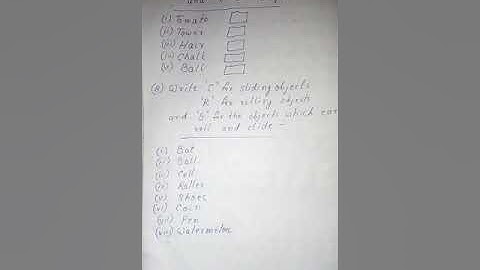 and
(i) Tomato
(ii) Tower
(iii) Hair
(iv) Chalk
(v) Ball
(B) Write 'C' for sliding objects
'R' for rolling objects
and 'B' for the objects which can
roll and slide -
(i) Bat
(ii) Ball
(iii) Cell
(iv) Roller
(v) Shoes
(vi) Coin
(vii) Pen
(viii) Watermelon